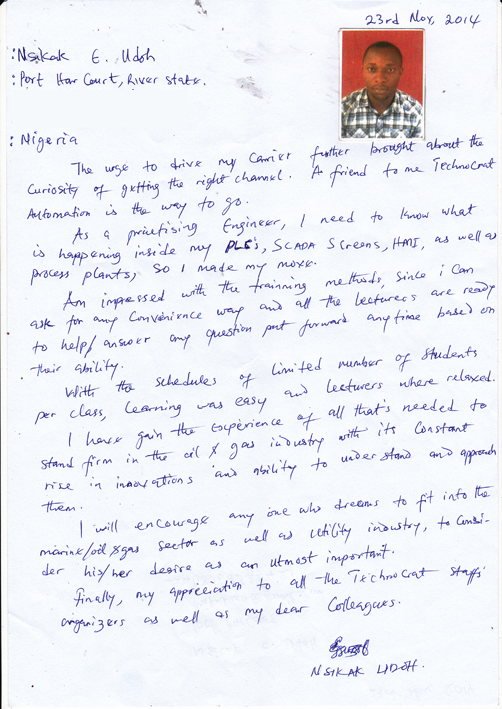 23rd Nov, 2014
:Nsikak E. Udoh
:Port Har Court, River State.
:Nigeria
The urge to drive my Carrier further brought about the
Curiosity of getting the right channel. A friend to me Technocrat
Automation is the way to go.
As a practising Engineer, I need to know what
is happening inside my PLC's, SCADA Screens, HMI, as well as
process plants, so I made my move.
Am impressed with the trainning methods, since i can
ask for any Convenience way and all the lecturers are ready
to help/answer any question put forward anytime based on
their ability.
With the schedules of limited number of Students
per class, Learning was easy and lecturers where relaxed.
I have gain the Experience of all that's needed to
stand firm in the oil & gas industry with its Constant
rise in innovations and ability to understand and approach
them.
I will encourage any one who dreams to fit into the
marine/oil & gas sector as well as utility industry, to Consi-
der his/her desire as an utmost important.
Finally, my appreciation to all the Technocrat Staffs'
organizers as well as my dear Colleagues.
NSIKAK UDOH.